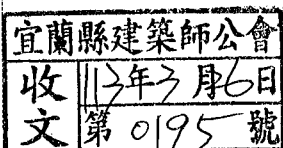 宜蘭縣建築師公會
收文 113年3月6日
第 0195 號